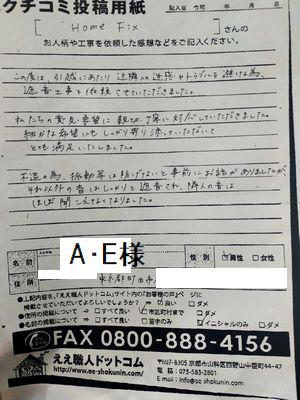 クチコミ投稿用紙
記入日 令和 年 月 日
[ Home Fix ]さんの
お人柄や工事を依頼した感想などをご記入ください。
この度は、引越にあたり近隣への迷惑やトラブルを避ける為、
遮音工事を依頼させていただきました。
私たちの意見・希望に親切、丁寧に対応していただきました。
細かな希望にもしっかり寄り添っていただいて
とても満足いたしました。
木造の為、振動等は防げないと事前にお話がありましたが、
それ以外の音はしっかりと遮音され、隣人の音は
ほぼ聞こえなくなりました。
名前
A・E様
性別
男性 女性
住所
東京都町田市
●上記内容を、「ええ職人ドットコム」サイト内の「お客様の声」ページに
掲載させていただいてよろしいでしょうか? 良い ダメ
●住所の掲載について⇒ すべて良い 市区町村まで ダメ
●名前の掲載について⇒ すべて良い 苗字のみ イニシャルのみ ダメ
FAX 0800-888-4156
ええ職人ドットコム
http://www.ee-shokunin.com/
〒607-8305 京都市山科区西野山中臣町44-47
電話: 075-583-2801
E mail: info@ee-shokunin.com